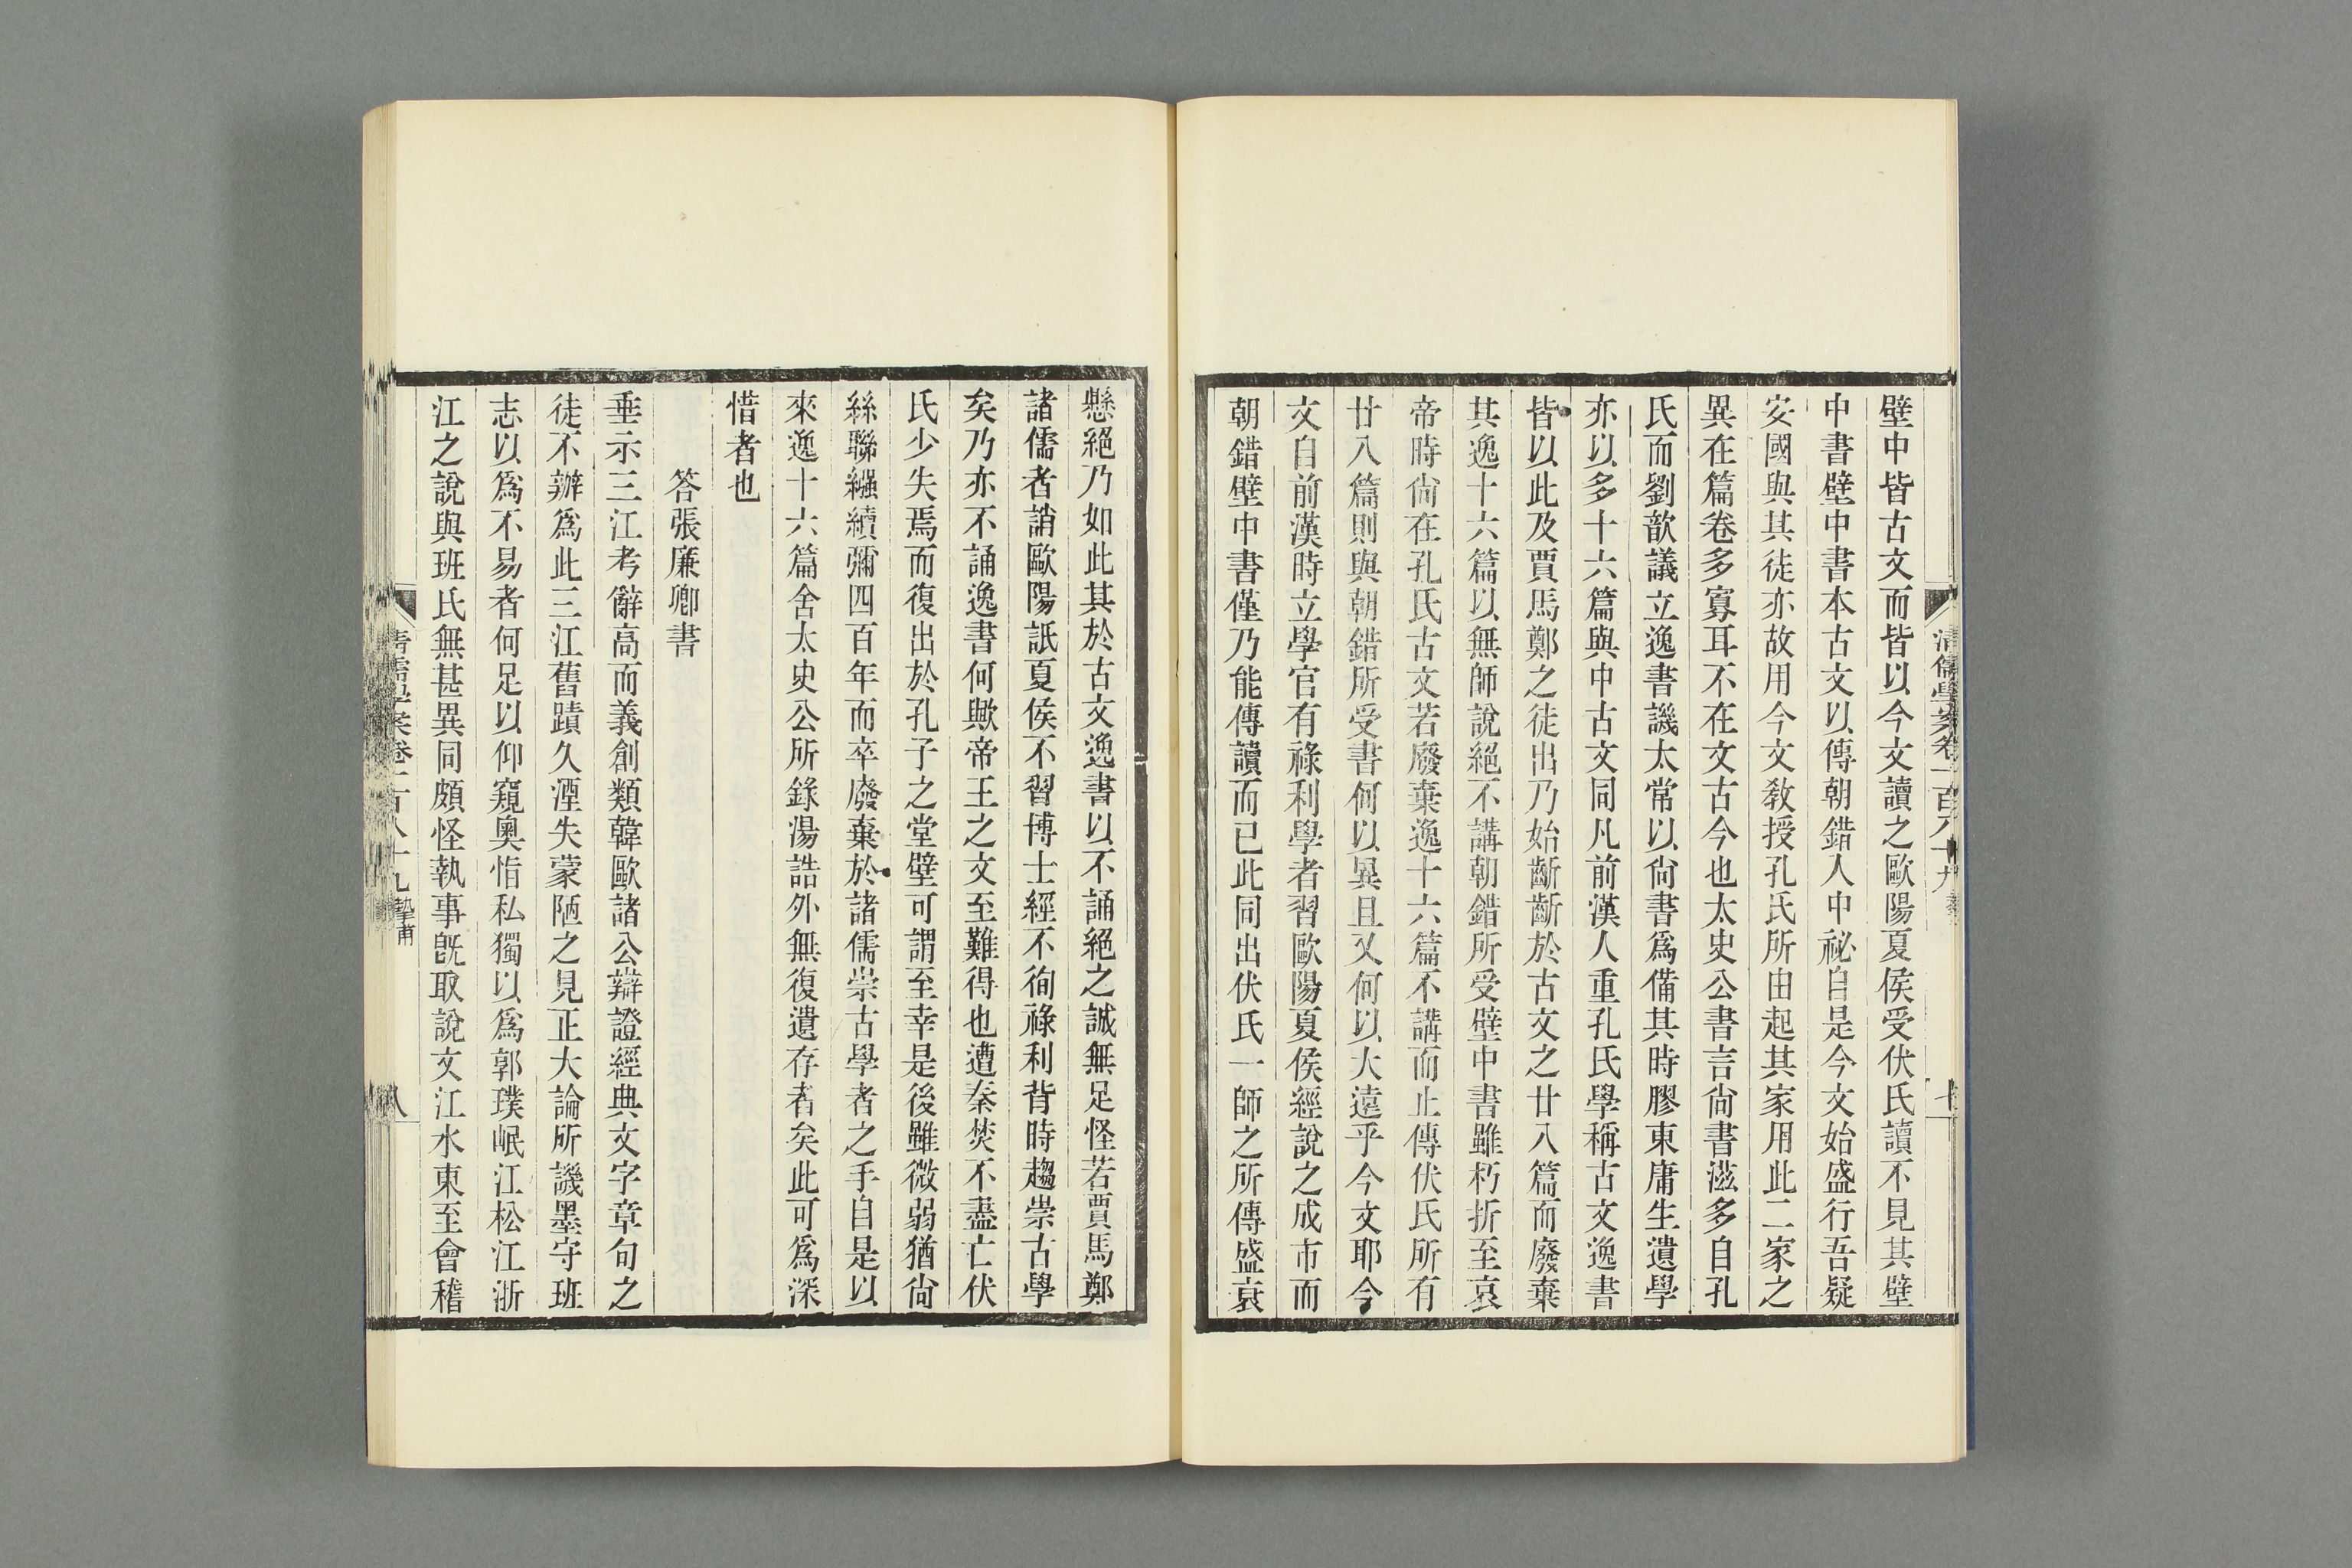 壁中皆古文而皆以今文讀之歐陽夏侯受伏氏讀不見其壁
中書壁中書本古文以傳朝錯入中祕自是今文始盛行吾疑
安國與其徒亦故用今文敎授孔氏所由起其家用此二家之
異在篇卷多寡耳不在文古今也太史公書言尙書滋多自孔
氏而劉歆議立逸書譏太常以尙書爲備其時膠東庸生遺學
亦以多十六篇與中古文同凡前漢人重孔氏學稱古文逸書
皆以此及賈馬鄭之徒出乃始齗齗於古文之廿八篇而廢棄
其逸十六篇以無師說絕不講朝錯所受壁中書雖朽折至哀
帝時尙在孔氏古文若廢棄逸十六篇不講而止傳伏氏所有
廿八篇則與朝錯所受書何以異且又何以大遠乎今文耶今
文自前漢時立學官有祿利學者習歐陽夏侯經說之成市而
朝錯壁中書僅乃能傳讀而已此同出伏氏一師之所傳盛衰
清儒學案卷一百八十九
七
懸絕乃如此其於古文逸書以不誦絕之誠無足怪若賈馬鄭
諸儒者誚歐陽詆夏侯不習博士經不徇祿利背時趨崇古學
矣乃亦不誦逸書何歟帝王之文至難得也遭秦焚不盡亡伏
氏少失焉而復出於孔子之堂壁可謂至幸是後雖微弱猶尙
絲聯繦續彌四百年而卒廢棄於諸儒崇古學者之手自是以
來逸十六篇舍太史公所錄湯誥外無復遺存者矣此可爲深
惜者也
答張廉卿書
垂示三江考辭高而義創類韓歐諸公辯證經典文字章句之
徒不辦爲此三江舊蹟久湮失蒙陋之見正大論所譏墨守班
志以爲不易者何足以仰窺奧恉私獨以爲郭璞岷江松江浙
江之說與班氏無甚異同頗怪執事旣取說文江水東至會稽
清儒學案卷一百八十九 摯甫
八